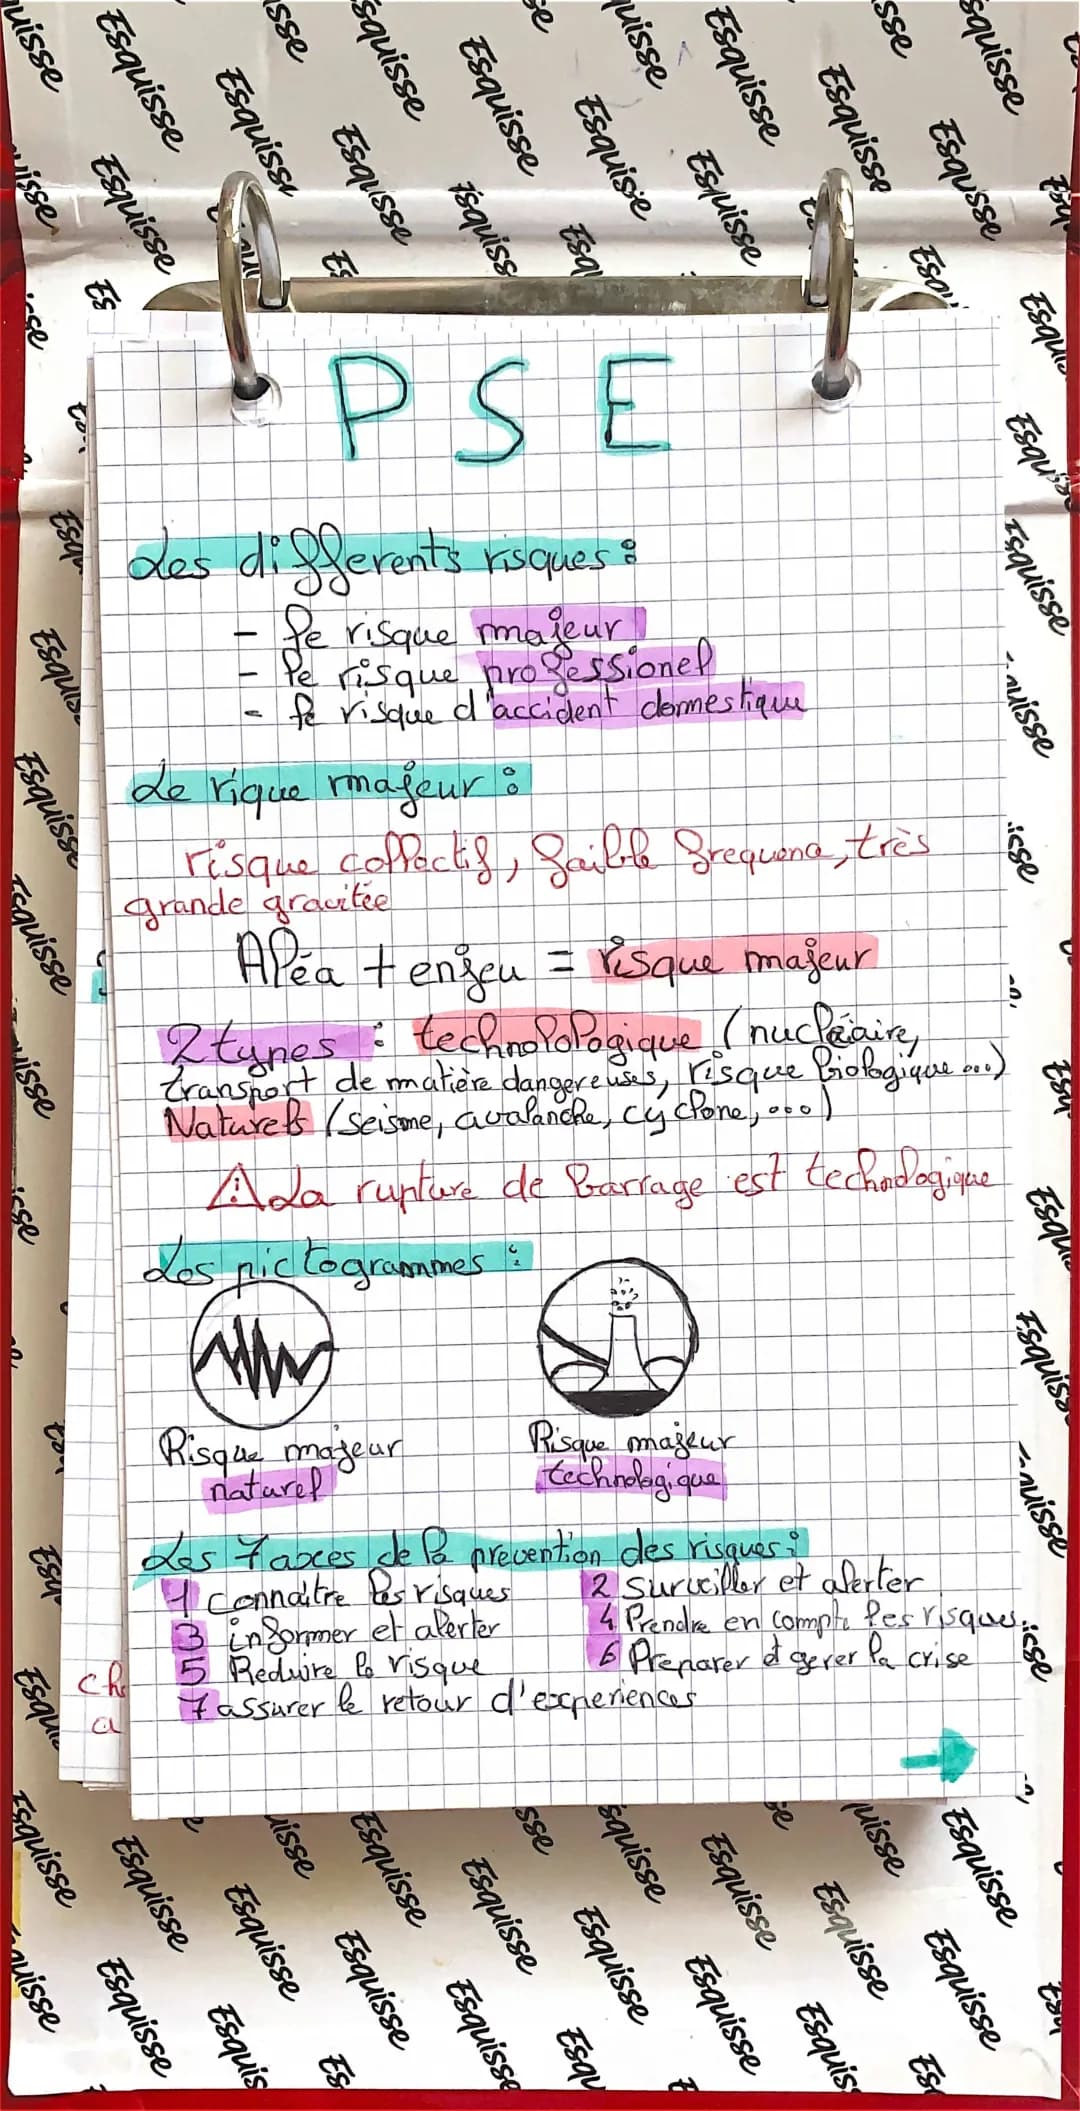 P S E
Les differents risques :
- le risque majeur
- le risque professionel
- le risque d'accident domestique
Le rique majeur :
risque collectif, faible frequence, très
grande gravitée
Aléa + enjeu = risque majeur
2 types : technolologique (nucléaire,
transport de matière dangereuses, risque biologique ...)
Naturels (seisme, avalanche, cyclone, ...)
⚠ La rupture de barrage est technologique
Les pictogrammes :
Risque majeur
naturel
Risque majeur
technologique
Les 7 axces de la prevention des risques :
1 connaître les risques
2 surveiller et alerter
3 informer et alerter
4 Prendre en compte les risques
5 Reduire le risque
6 Preparer et gerer la crise
7 assurer le retour d'experiences
ch
a
Esquisse